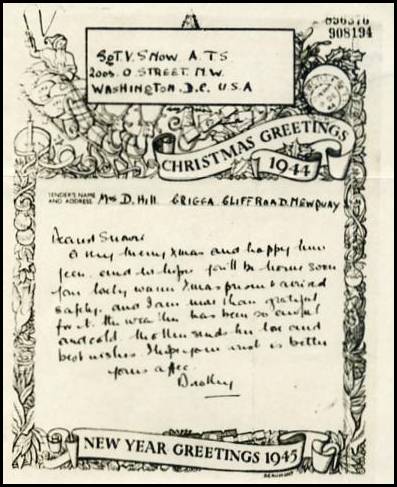 896376
908194
SGT. V. SNOW A.T.S
2005. O STREET. N.W.
WASHINGTON. D.C. U.S.A
CHRISTMAS GREETINGS
1944
SENDER'S NAME
AND ADDRESS
Mrs D. Hill CRIGGA CLIFF ROAD. NEWQUAY
Dearest Snowie
A very merry Xmas and happy New
Year and so hope you'll be home soon
Your lovely warm Xmas present arrived
safely, and I am more than grateful
for it. The weather has been so awful
and cold. Mother sends her love and
best wishes. I hope your is better
yours affec.
NEW YEAR GREETINGS 1945